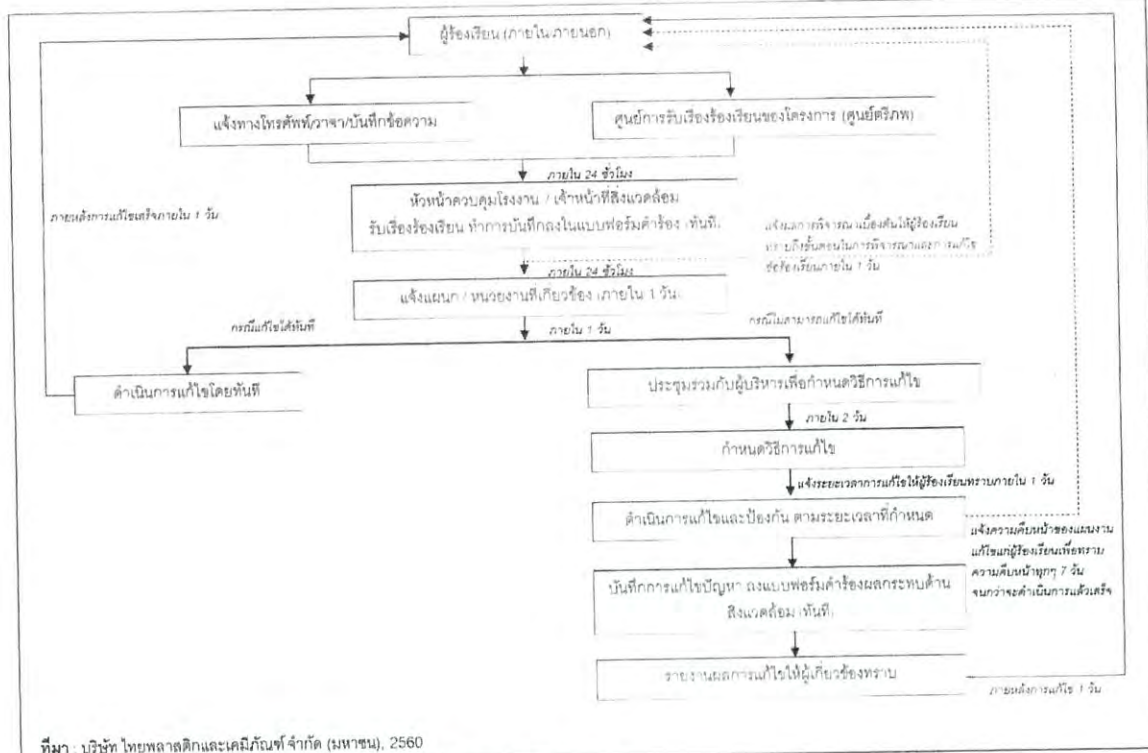 ผู้ร้องเรียน (ภายใน/ภายนอก)
แจ้งทางโทรศัพท์/วาจา/บันทึกข้อความ
ศูนย์การรับเรื่องร้องเรียนของโครงการ (ศูนย์ตรีภพ)
ภายใน 24 ชั่วโมง
หัวหน้าควบคุมโรงงาน / เจ้าหน้าที่สิ่งแวดล้อม
รับเรื่องร้องเรียน ทำการบันทึกลงในแบบฟอร์มคำร้อง (ทันที)
ภายหลังการแก้ไขเสร็จภายใน 1 วัน
แจ้งผลการพิจารณาเบื้องต้นให้ผู้ร้องเรียน
ทราบถึงขั้นตอนในการพิจารณาและการแก้ไข
ข้อร้องเรียนภายใน 1 วัน
ภายใน 24 ชั่วโมง
แจ้งแผนก / หน่วยงานที่เกี่ยวข้อง (ภายใน 1 วัน)
กรณีแก้ไขได้ทันที
ภายใน 1 วัน
กรณีไม่สามารถแก้ไขได้ทันที
ดำเนินการแก้ไขโดยทันที
ประชุมร่วมกับผู้บริหารเพื่อกำหนดวิธีการแก้ไข
ภายใน 2 วัน
กำหนดวิธีการแก้ไข
แจ้งระยะเวลาการแก้ไขให้ผู้ร้องเรียนทราบภายใน 1 วัน
ดำเนินการแก้ไขและป้องกัน ตามระยะเวลาที่กำหนด
แจ้งความคืบหน้าของแผนงาน
แก้ไขแก่ผู้ร้องเรียนเพื่อทราบ
ความคืบหน้าทุกๆ 7 วัน
จนกว่าจะดำเนินการแล้วเสร็จ
บันทึกการแก้ไขปัญหา ลงแบบฟอร์มคำร้องผลกระทบด้าน
สิ่งแวดล้อม (ทันที)
รายงานผลการแก้ไขให้ผู้เกี่ยวข้องทราบ
ภายหลังการแก้ไข 1 วัน
ที่มา : บริษัท ไทยพลาสติกและเคมีภัณฑ์ จำกัด (มหาชน), 2560